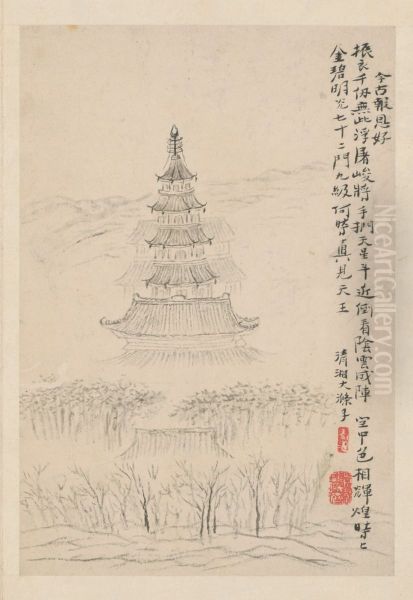 今古報恩好
振衣千仞無此浮屠峻將手捫天星斗近倒看陰雲成陣 空中色相輝煌時〻
金碧明光七十二門九級何時真見天王
清湘大滌子